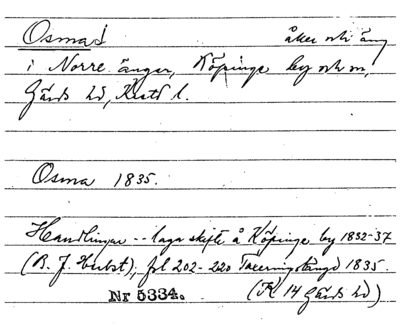 Osmad åker och äng
i Norre ängar, Köpinge by och sn,
Gärds hd, Krstd l.
Osma 1835.
Handlingar -- laga skifte å Köpinge by 1832-37
(B. J. Herbst), fol 202-220 Taxeringslängd 1835.
Nr 5334. (K 14 Gärds hd)